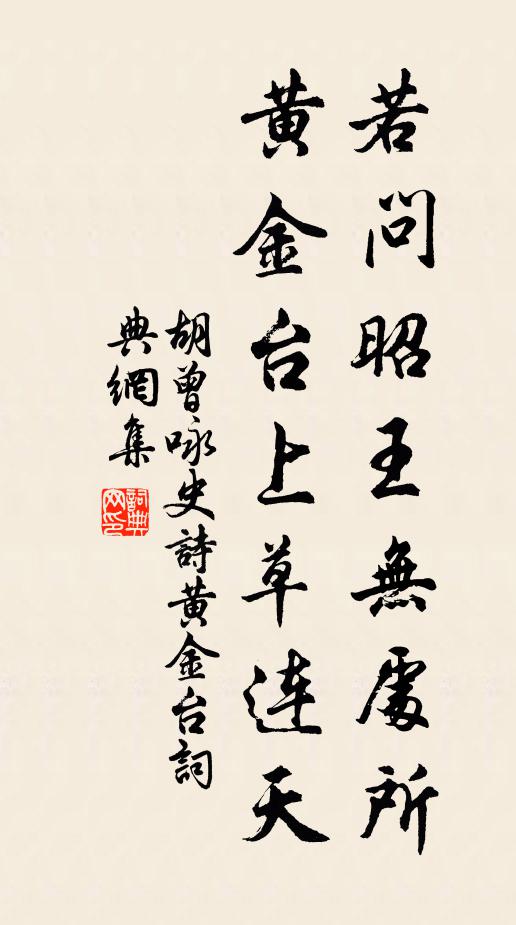 若問昭王無處所
黃金台上草連天
胡曾咏史詩黃金台詞
典網集
詞典
网印